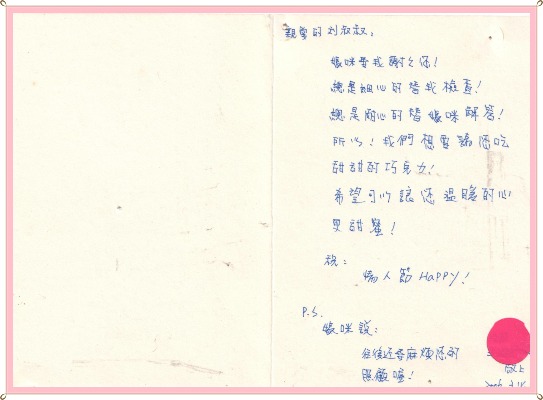 親愛的刘叔叔：
媽咪要我謝謝你！
總是細心的替我檢查！
總是耐心的替媽咪解答！
所以！我們想要請您吃
甜甜的巧克力！
希望可以讓您溫暖的心
更甜蜜！
祝：
情人節 HAPPY！
P.S.
媽咪說：
往後还要麻煩您的
照顧喔！
敬上